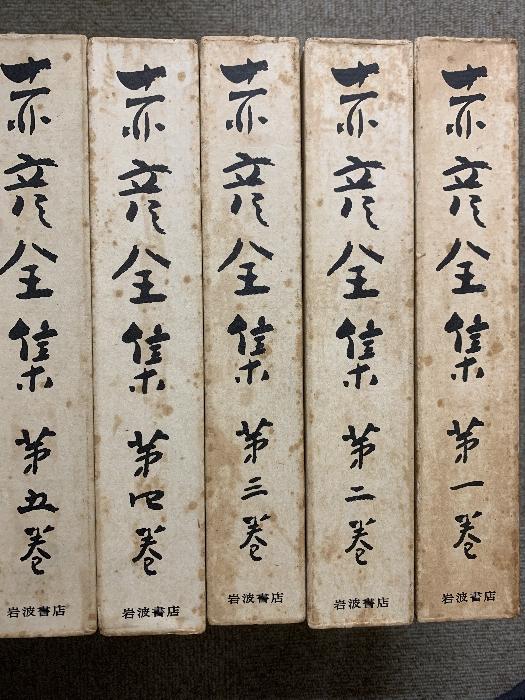 赤彦全集 第一巻
岩波書店
赤彦全集 第二巻
岩波書店
赤彦全集 第三巻
岩波書店
赤彦全集 第四巻
岩波書店
赤彦全集 第五巻
岩波書店